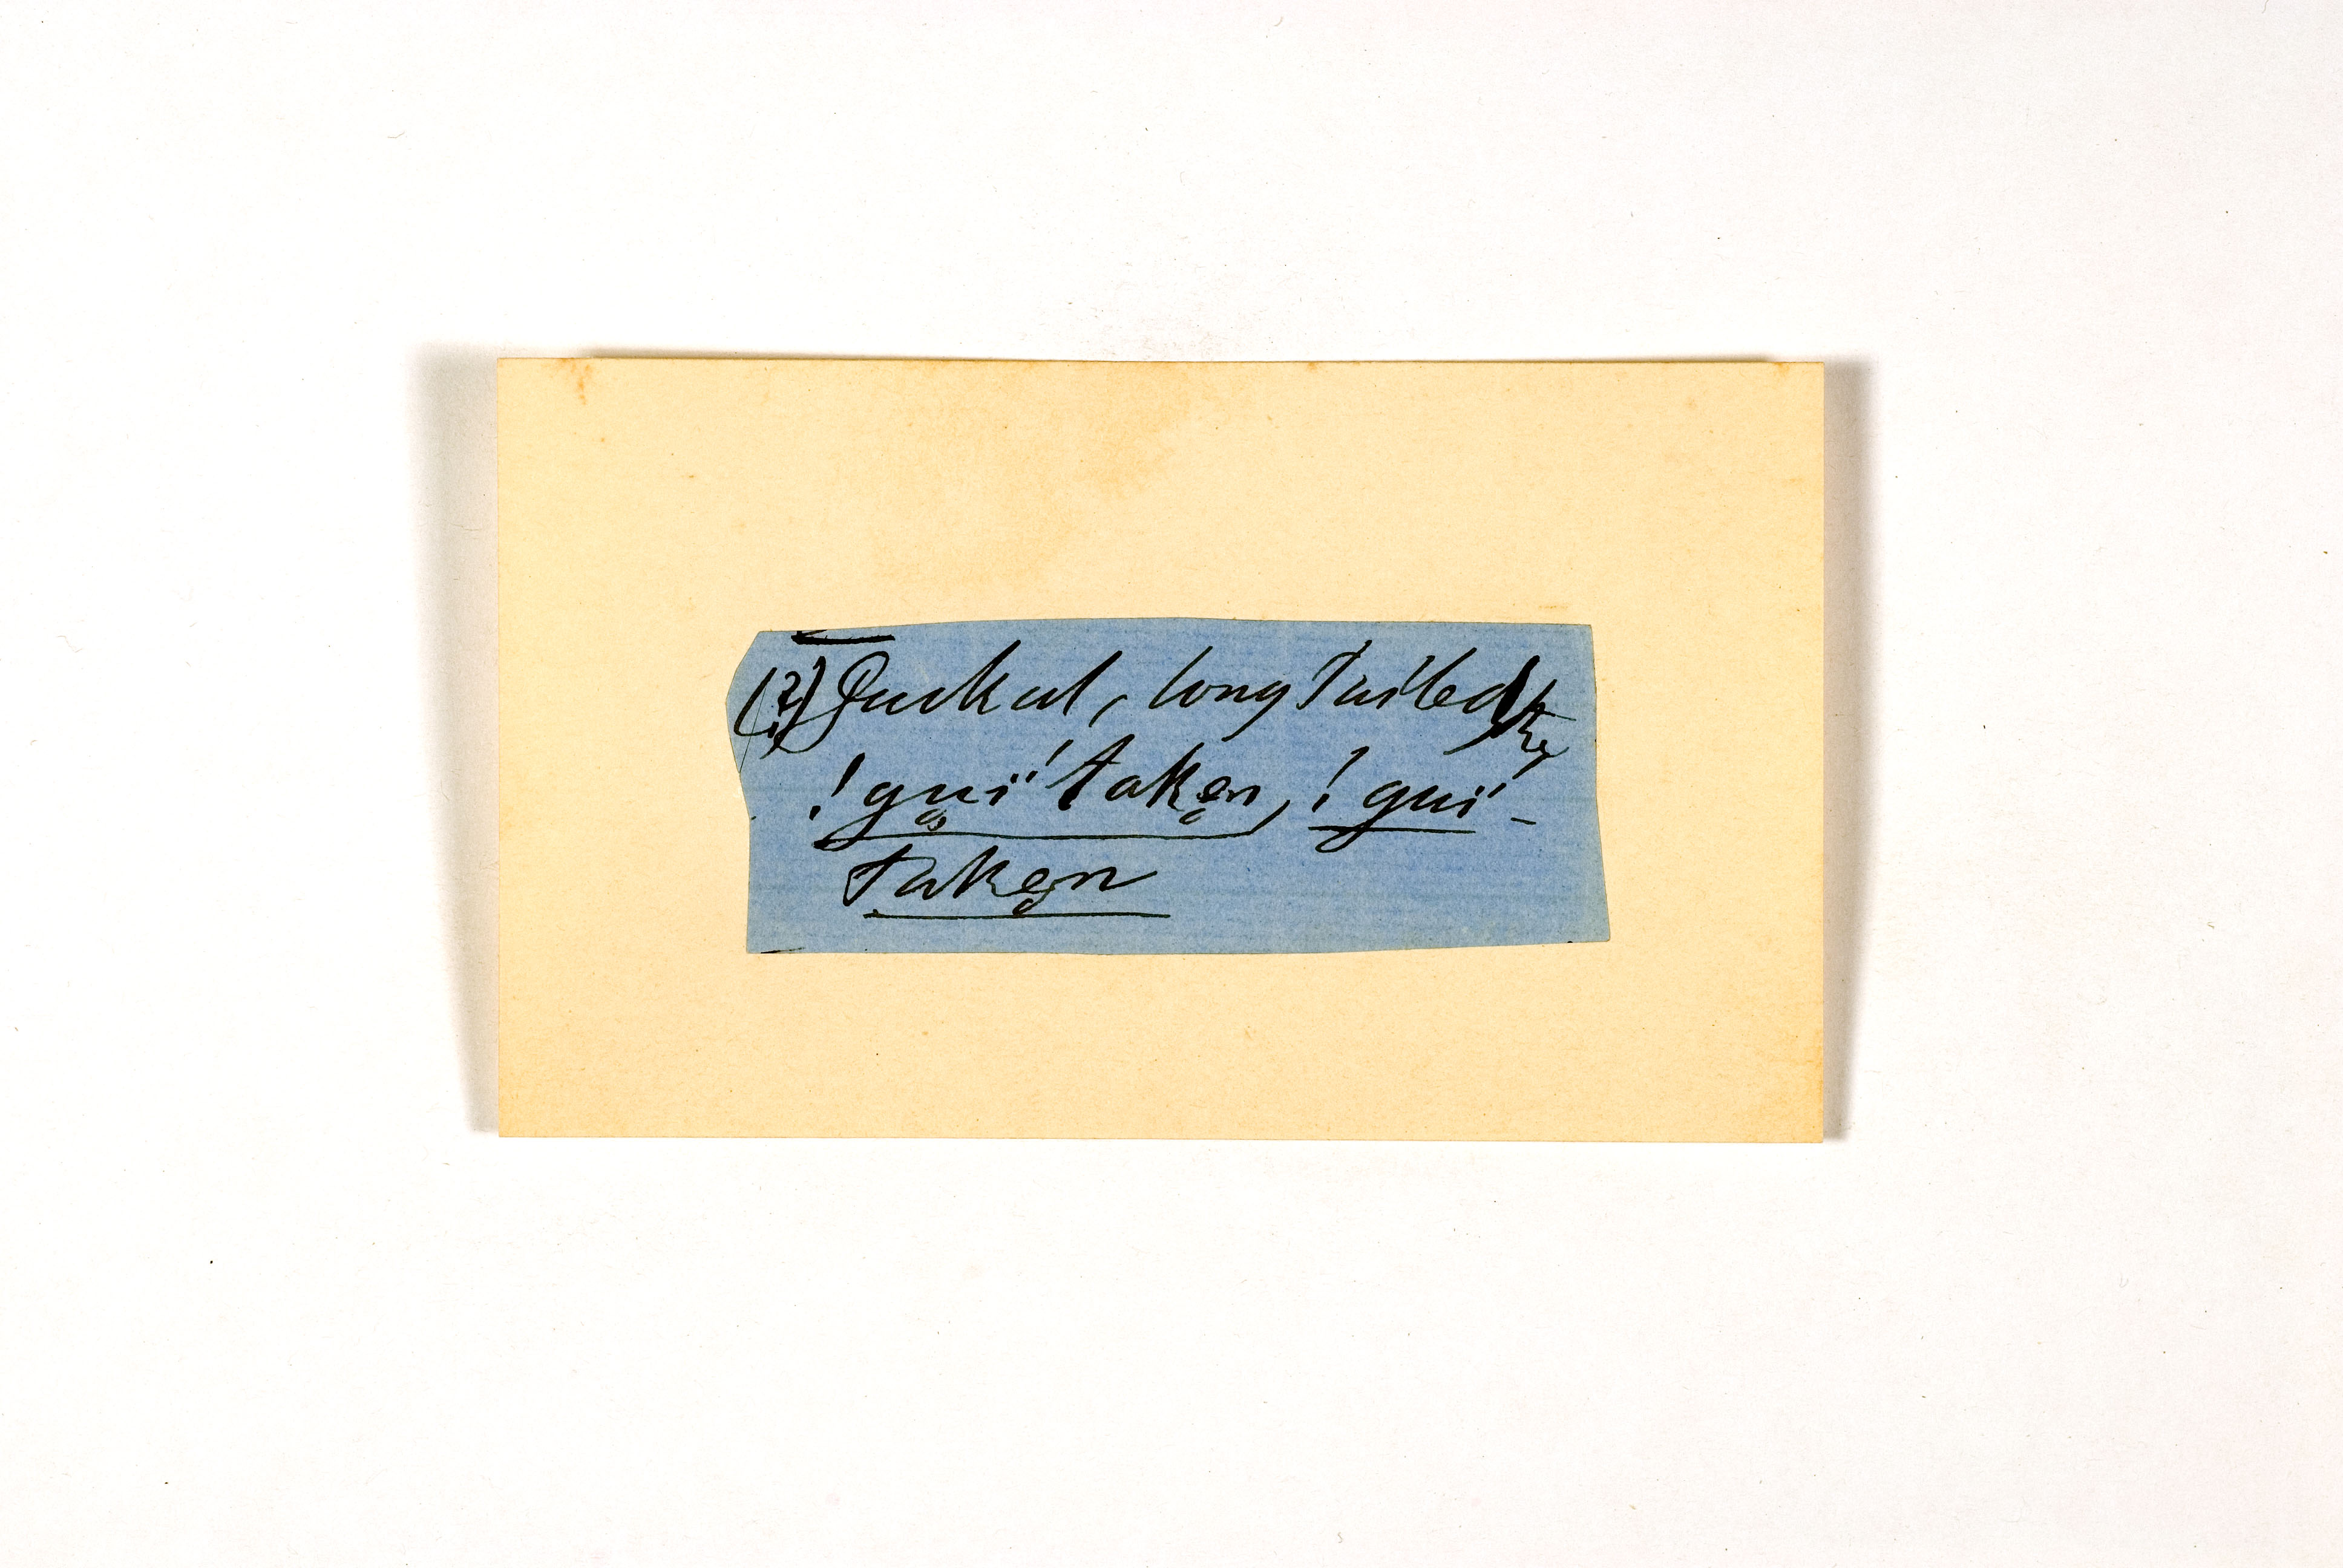 (?) Jackal, long tailed, the
!guï' taken, !gui'-
taken